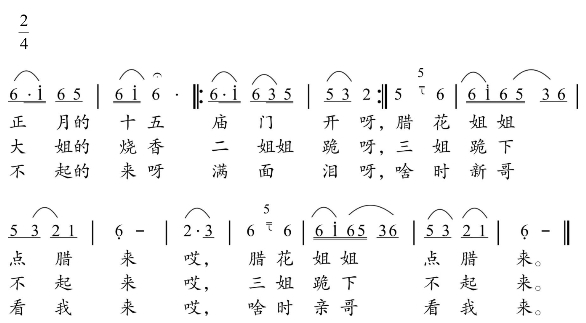 2
4
6·i 6 5 | 6 i 6 · ‖: 6·i 6 3 5 | 5 3 2 :‖ 5 5 6 | 6 i 6 5 3 6 |
正 月的 十五 庙 门 开 呀, 腊 花 姐 姐
大 姐的 烧香 二 姐姐 跪 呀, 三 姐 跪 下
不 起的 来呀 满 面 泪 呀, 啥 时 新 哥
5 3 2 1 | 6 – | 2·3 | 6 5 6 | 6 i 6 5 3 6 | 5 3 2 1 | 6 – ‖
点 腊 来 哎, 腊 花 姐 姐 点 腊 来。
不 起 来 哎, 三 姐 跪 下 不 起 来。
看 我 来 哎, 啥 时 亲 哥 看 我 来。